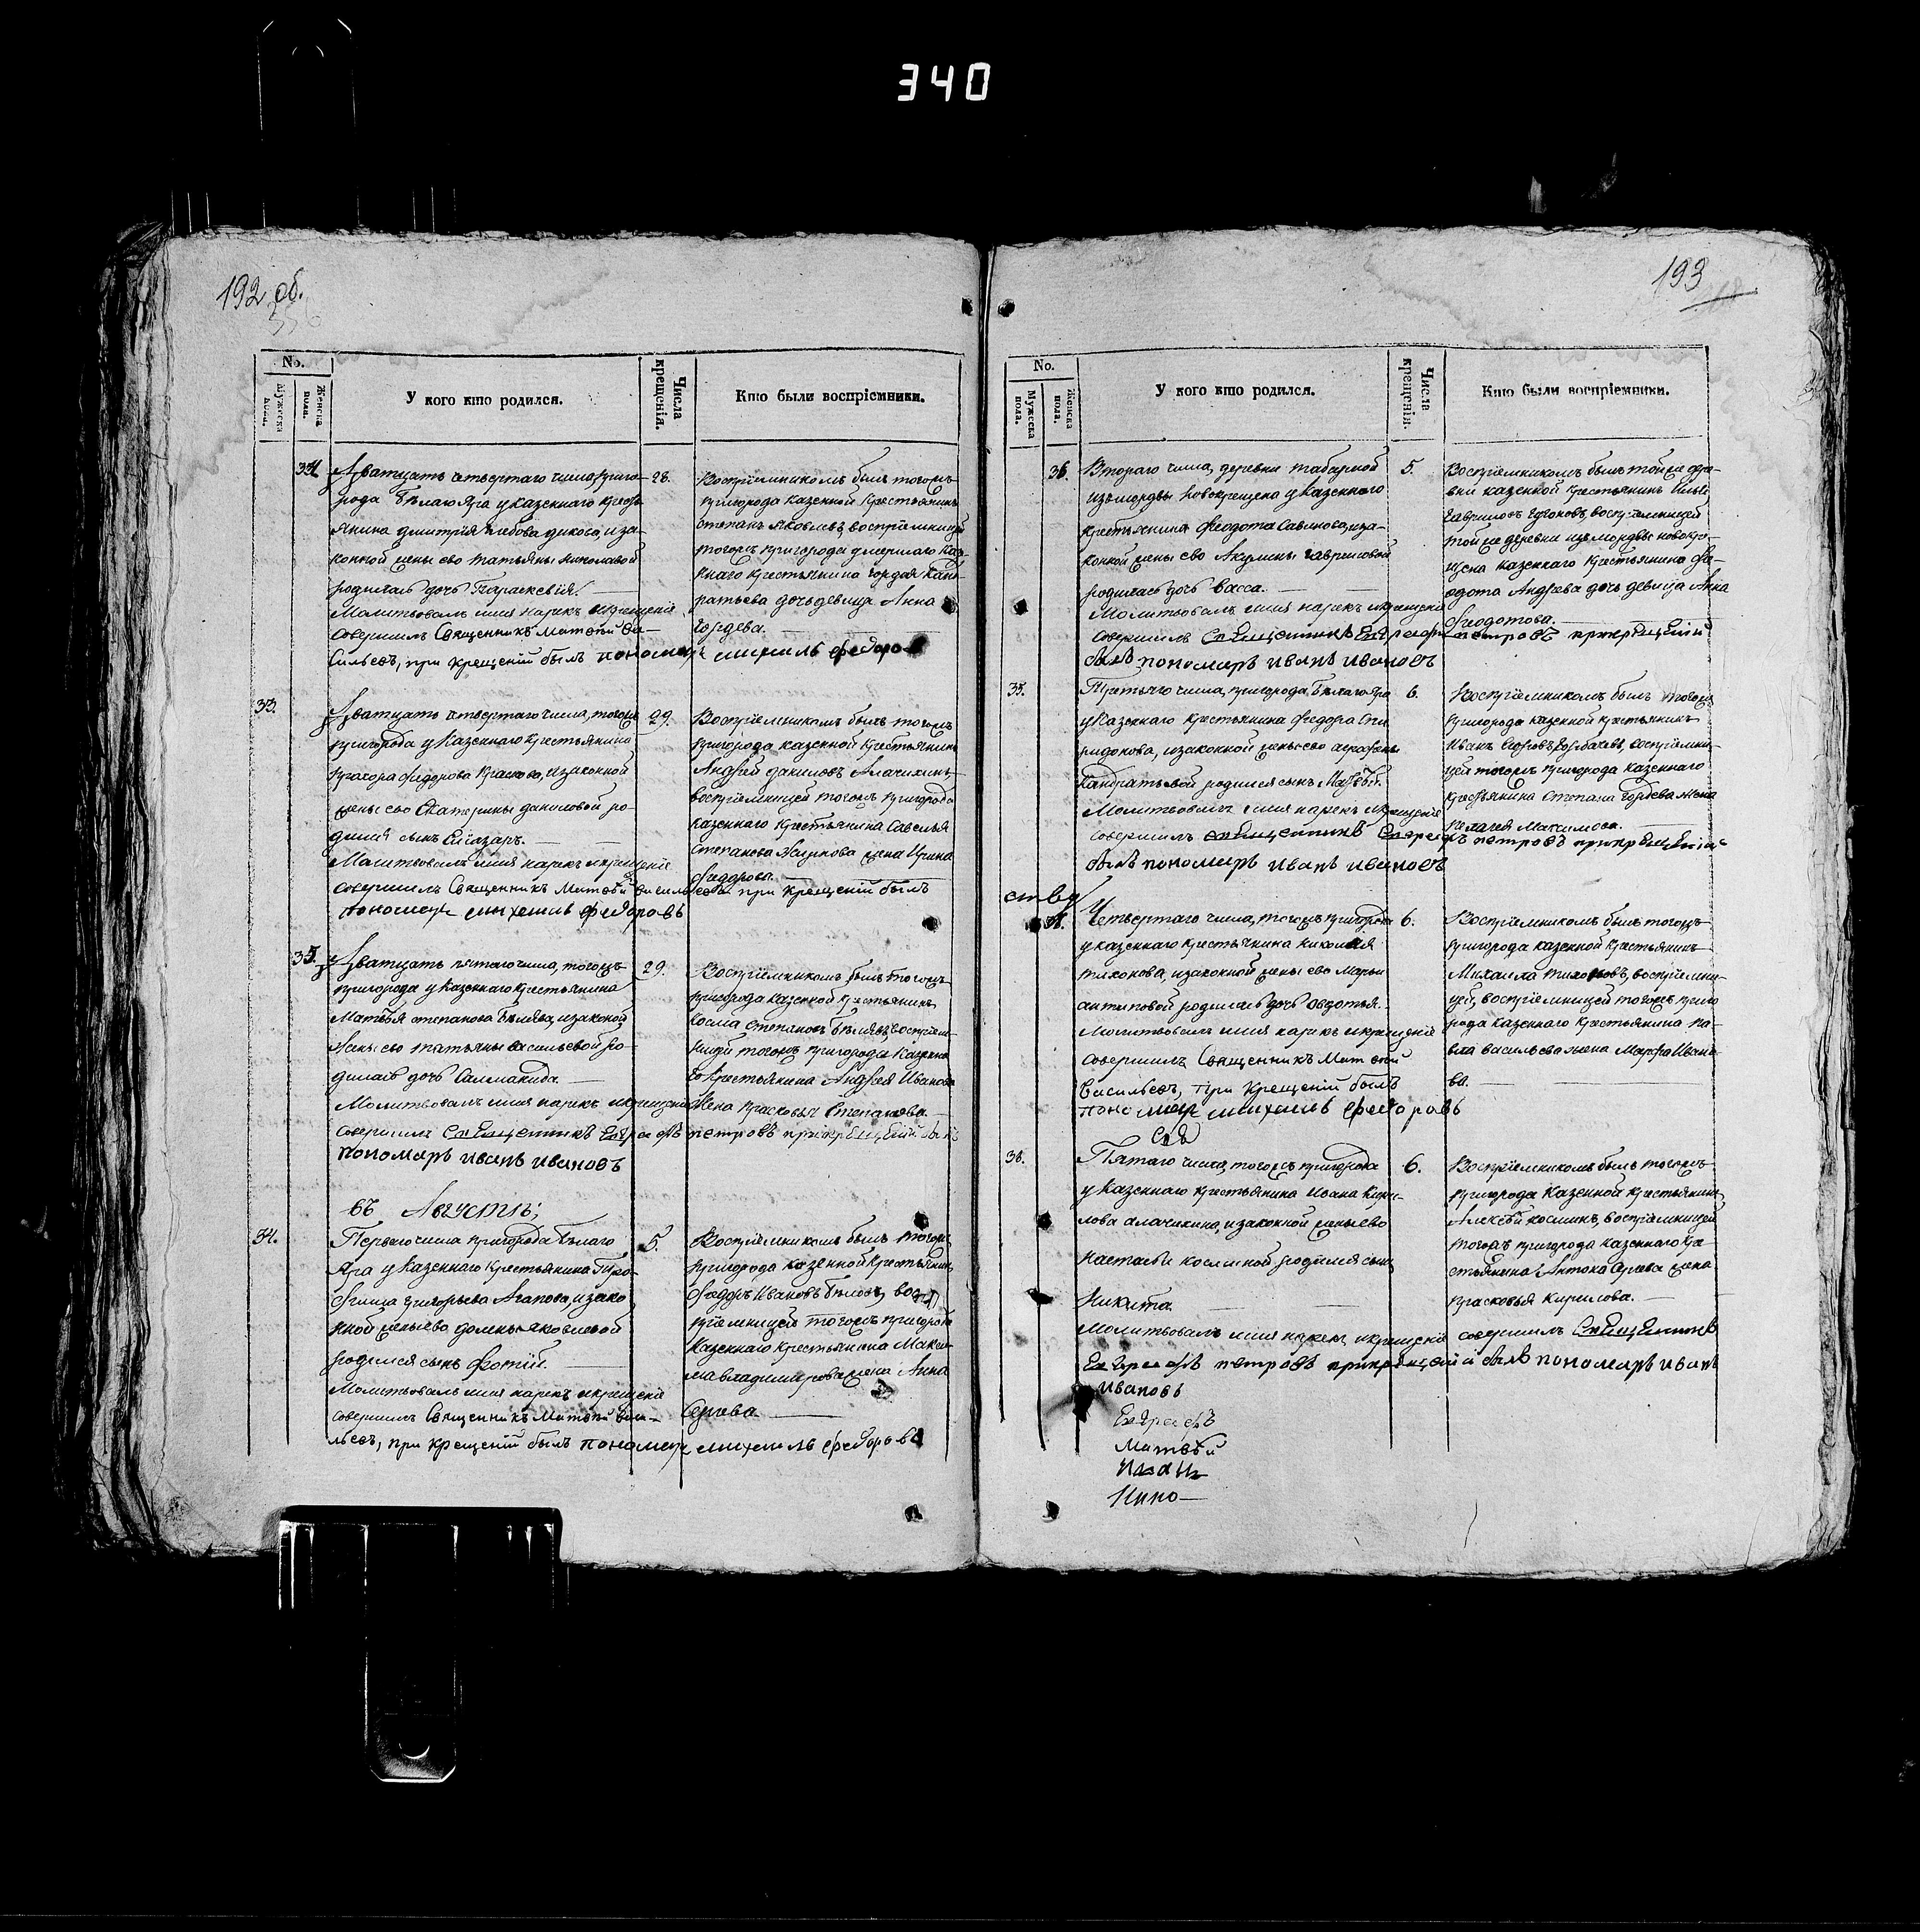 340
192 об.
No.
Мужеска пола.
Женска пола.
У кого кто родился.
Числа крещенія.
Кто были воспріемники.
34
Дватцать четвертаго числа приго-
рода Белаго Яра у казеннаго кресть-
янина дмитрия
конной жены ево татьяны
родилась дочь Параскевія.
Молитвовалъ имя нарекъ и крещеніе
совершилъ Священникъ Матвѣй Ва-
сильевъ, при крещеніи былъ пономарь михаилъ федоровъ
28.
Воспріемникомъ былъ тогожъ
пригорода казенной крестьянинъ
степанъ яковлевъ, воспріемницей
тогожъ пригорода умершаго казе-
ннаго крестьянина гордея кон-
ратьева дочь девица Анна
Гордева.
33.
Дватцать четвертаго числа, тогожъ
пригорода у казеннаго крестьянина
прохора федорова изаконной
жены ево Екатерины даниловой ро-
дился сынъ Елиазаръ.
Молитвовалъ имя нарекъ и крещеніе
совершилъ Священникъ Матвѣй Васильевъ при крещеніи былъ
пономарь михаилъ федоровъ
29.
Воспріемникомъ былъ тогожъ
пригорода казенной крестьянинъ
Андрей даниловъ
воспріемницей тогожъ пригорода
казеннаго крестьянина Савелья
степанова жена Ирина
Федорова.
35.
Дватцать пятаго числа, тогожъ
пригорода у казеннаго крестьянина
Матвѣя степанова Бѣляева, изаконой
жены ево татьяны васильевой ро-
дилась дочь
Молитвовалъ имя нарекъ и крещеніе
совершилъ священникъ Евграфъ петровъ при крещеніи былъ
пономарь иванъ ивановъ
29.
Воспріемникомъ былъ тогожъ
пригорода казенной крестьянинъ
косма степановъ Бѣляевъ, воспріем-
ницей тогожъ пригорода казенна-
го крестьянина Андрея Иванова
жена прасковья Степанова.
въ Августѣ;
34.
Перваго числа пригорода Бѣлаго
Яра у казеннаго крестьянина Тро-
фима григорьева Агапова, изако-
нной жены ево домны яковлевой
родился сынъ Фотій.
Молитвовалъ имя нарекъ и крещеніе
совершилъ Священникъ Матвѣй Васи-
льевъ, при крещеніи былъ пономарь михаилъ федоровъ
5.
Воспріемникомъ былъ тогожъ
пригорода казенной крестьянинъ
Федоръ Ивановъ вос-
пріемницей тогожъ пригорода
казеннаго крестьянина Макси-
ма владимирова жена Анна
Сергева
193
No.
Мужеска пола.
Женска пола.
У кого кто родился.
Числа крещенія.
Кто были воспріемники.
36.
Втораго числа, деревни
измордвы новокрещена у казеннаго
крестьянина федота иза-
конной жены ево Акулины гавриловой
родилась дочь Васса.
Молитвовалъ имя нарекъ и крещеніе
совершилъ священникъ Евграфъ петровъ при крещеніи
былъ пономарь иванъ ивановъ
5.
Воспріемникомъ былъ тойже дере-
вни казенной крестьянинъ Илья
гавриловъ воспріемницей
тойже деревни измордвы новокре-
щена казеннаго крестьянина фе-
одота Андреева дочь девица Анна
Феодотова.
35.
Третьяго числа, пригорода Бѣлаго Яра
у казеннаго крестьянина федора Спи-
ридонова, изаконной жены ево аграфены
кандратьевой родился сынъ Матвѣй.
Молитвовалъ имя нарекъ и крещеніе
совершилъ священникъ Евграфъ петровъ при крещеніи
былъ пономарь иванъ ивановъ
6.
Воспріемникомъ былъ тогожъ
пригорода казенной крестьянинъ
Иванъ воспріемни-
цей тогожъ пригорода казеннаго
крестьянина Степана Гордеева жена
пелагея Максимова.
37.
Четвертаго числа, тогожъ пригорода
у казеннаго крестьянина николая
тихонова, изаконной жены ево Марьи
антиповой родилась дочь Овдотья.
Молитвовалъ имя нарекъ и крещеніе
совершилъ Священникъ Матвѣй
Васильевъ, при крещеніи былъ
пономарь михаилъ федоровъ
6.
Воспріемникомъ былъ тогожъ
пригорода казенной крестьянинъ
Михаила тихоновъ, воспріемни-
цей, воспріемницей тогожъ приго-
рода казеннаго крестьянина па-
вла васильева жена Марфа Ивано-
ва.
36.
Пятаго числа, тогожъ пригорода
у казеннаго крестьянина Ивана Кири-
лова алачихина, изаконной жены ево
настасьи косминой родился сынъ
Никита.
Молитвовалъ имя нарекъ и крещеніе совершилъ священникъ
Евграфъ петровъ при крещеніи былъ пономарь иванъ
ивановъ
6.
Воспріемникомъ былъ тогожъ
пригорода казенной крестьянинъ
Алексѣй косминъ, воспріемницей
тогожъ пригорода казеннаго кре-
стьянина Антона Сергева жена
прасковья Кирилова.
Евграфъ
Матвѣй